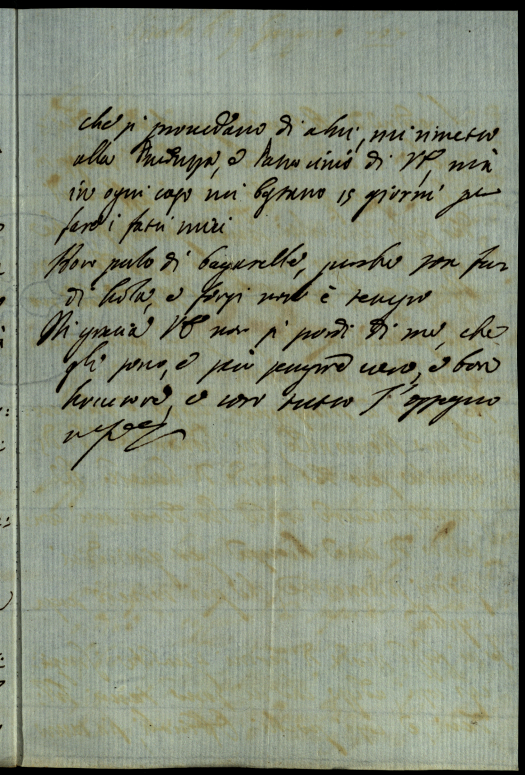 che si provedano di altri, mi rimetto
alla prudenza, e patrocinio di VS, mà
in ogni caso mi bastano 15 giorni per
fare i fatti miei
Non parlo di bagattelle, perche son fuor
di hotà, e forsi non è tempo
Di gratia VS non si scordi di me, che
gli sono, e sarò sempre vero, e bon
servitore, e con tutto l'ossequio